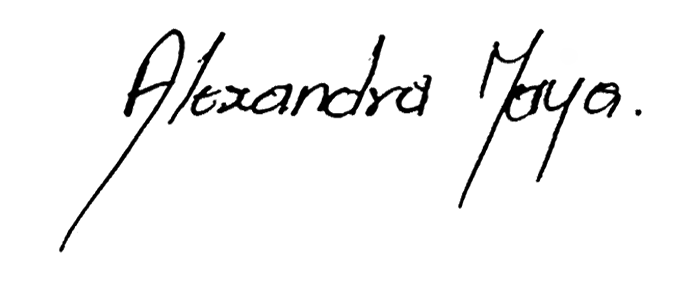 Alexandra Maya.